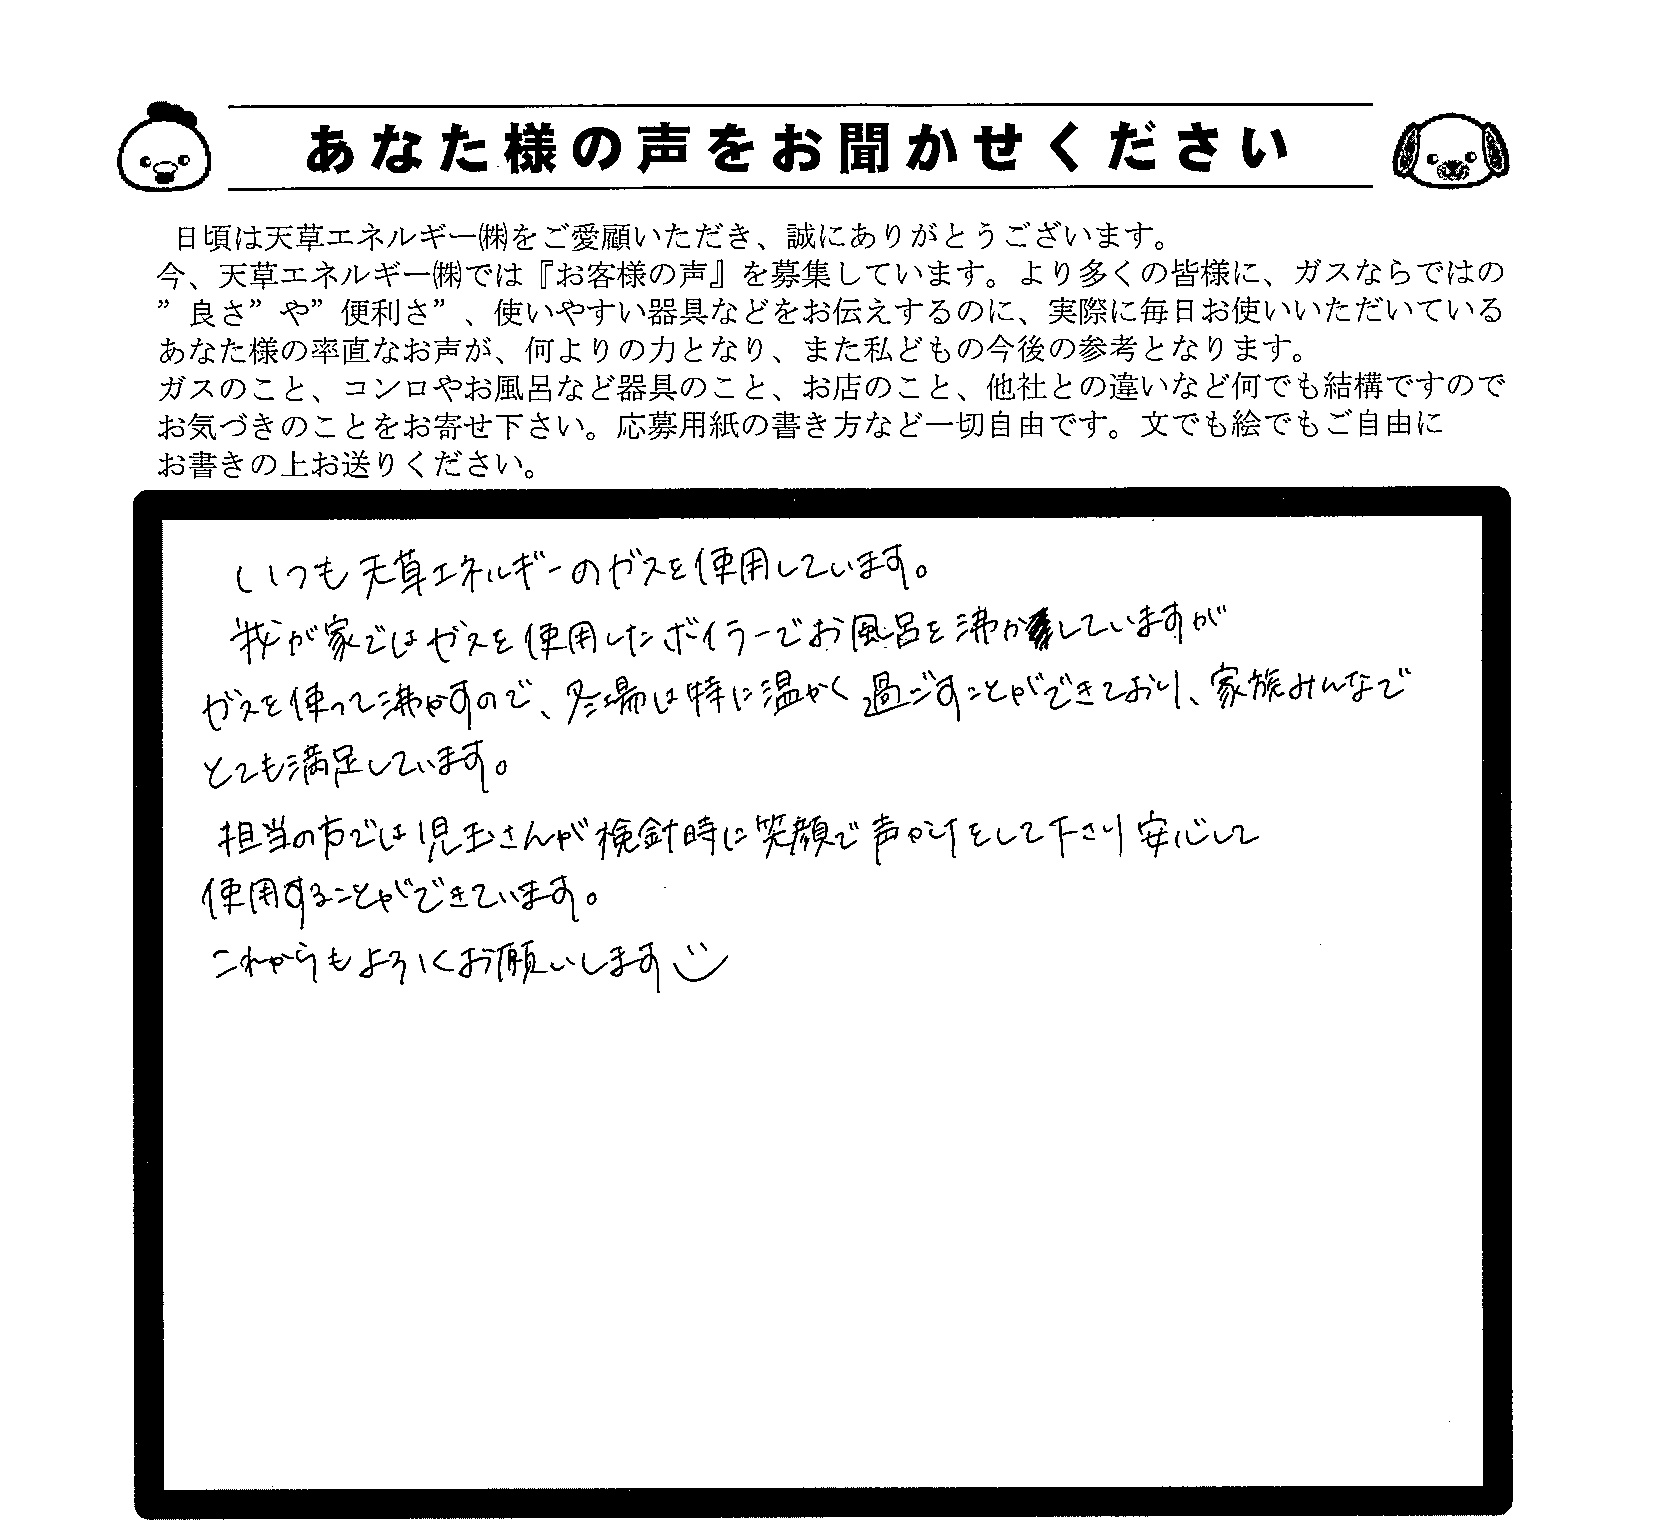 あなた様の声をお聞かせください
日頃は天草エネルギー㈱をご愛顧いただき、誠にありがとうございます。
今、天草エネルギー㈱では『お客様の声』を募集しています。より多くの皆様に、ガスならではの
”良さ”や”便利さ”、使いやすい器具などをお伝えするのに、実際に毎日お使いいただいている
あなた様の率直なお声が、何よりの力となり、また私どもの今後の参考となります。
ガスのこと、コンロやお風呂など器具のこと、お店のこと、他社との違いなど何でも結構ですので
お気づきのことをお寄せ下さい。応募用紙の書き方など一切自由です。文でも絵でもご自由に
お書きの上お送りください。
いつも天草エネルギーのガスを使用しています。
我が家ではガスを使用したボイラーでお風呂を沸かしていますが
ガスを使って沸かすので、冬場は特に温かく過ごすことができており、家族みんなで
とても満足しています。
担当の方では児玉さんが検針時に笑顔で声かけをして下さり安心して
使用することができています。
これからもよろしくお願いします